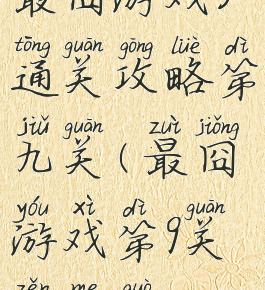 最囧游戏
tōng guān gōng lüè dì
通关攻略第
jiǔ guān zuì jiǒng
九关(最囧
yóu xì dì guān
游戏第9关
zěn me guò